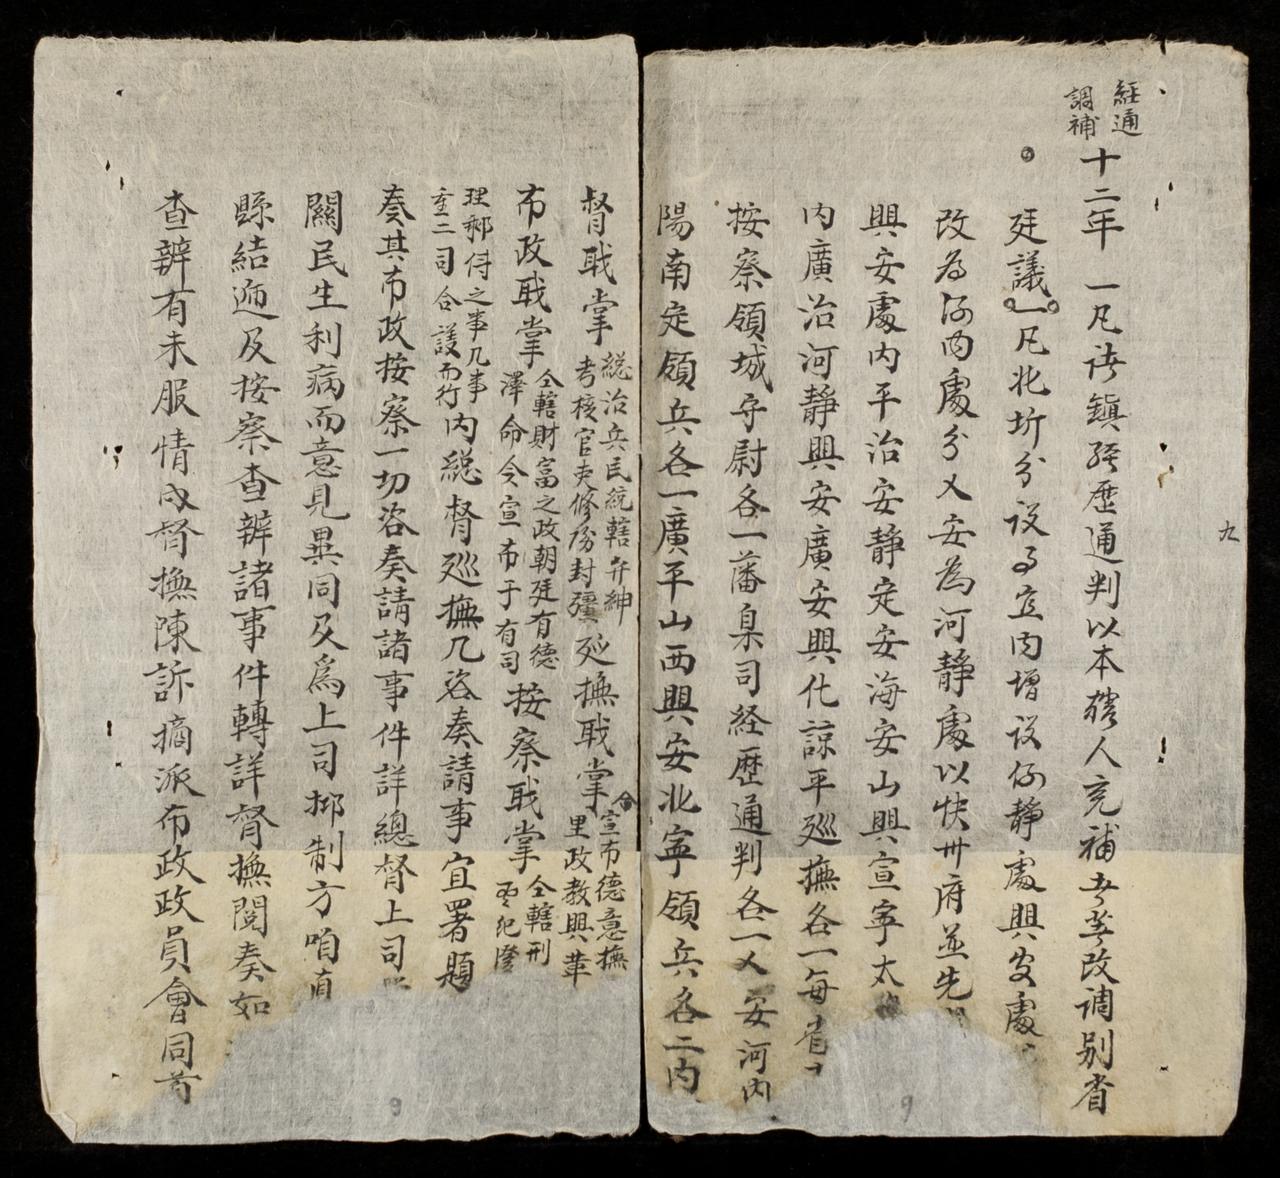 経通
調補
十二年一凡諸鎮経歴通判以本轄人充補者并改调别省
廷議一凡北圻分设事宜内增设保靜處興安處
改為河内處分乂安為河靜處以快州府並先
興安處内平治安靜定安海安山興宣寧太
内廣治河静興安廣安興化諒平廵撫各一每省
按察領城守尉各一藩臬司経歴通判各一乂安河内
陽南定領兵各一廣平山西興安北寧領兵各二内
督職掌
総治兵民統轄弁紳
考核官吏修飭封疆
廵撫職掌
宣布德意撫
里政教興革
布政職掌
仝轄財富之政朝廷有德
澤命令宣布于有司
按察職掌
仝轄刑
理郵傳之事凡事
重二司合議而行
内総督廵撫凡咨奏請事宜署題
奏其布政按察一切咨奏請諸事件詳總督上司
關民生利病而意見異同及為上司抑制方咱直
縣結逓及按察查辨諸事件轉詳督撫閱奏如
查辨有未服情或督撫陳訴摘派布政政員會同
九
9
9